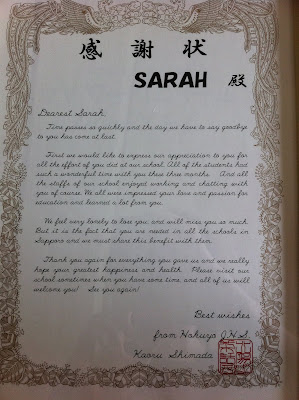 感謝状
SARAH 殿
Dearest Sarah,
Time passes so quickly and the day we have to say goodbye
to you has come at last.
First we would like to express our appreciation to you for
all the effort of you did at our school. All of the students had
such a wonderful time with you these three months. And all
the staffs of our school enjoyed working and chatting with
you of course. We all were impressed your love and passion for
education and learned a lot from you.
We feel very lonely to lose you, and will miss you so much.
But it is the fact that you are needed in all the schools in
Sapporo and we must share this benefit with them.
Thank you again for everything you gave us and we really
hope your greatest happiness and health. Please visit our
school sometimes when you have some time and all of us will
welcome you! See you again!
Best wishes
from Hokuyo J.H.S.
Kaoru Shimada